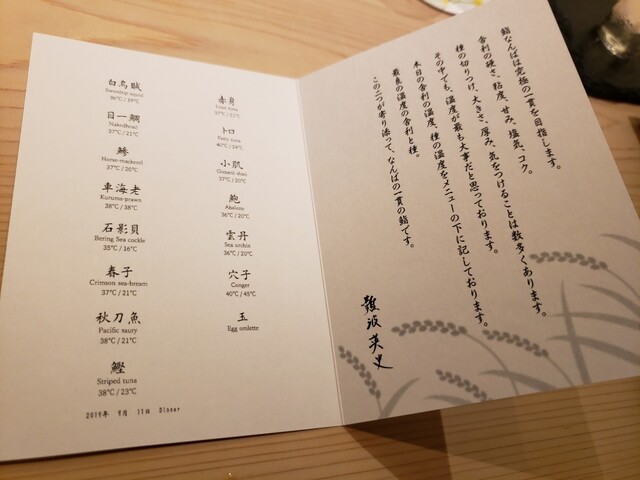 白烏賊
Swordtip squid
36°C / 19°C
目一鯛
Nakedhead
37°C / 21°C
鯵
Horse-mackerel
37°C / 26°C
車海老
Kuruma-prawn
38°C / 38°C
石影貝
Bering Sea cockle
35°C / 16°C
春子
Crimson sea-bream
37°C / 21°C
秋刀魚
Pacific saury
38°C / 21°C
鰹
Striped tuna
38°C / 23°C
赤身
Lean tuna
トロ
Fatty tuna
40°C / 24°C
小肌
Gizzard shad
37°C / 20°C
鮑
Abalone
36°C / 20°C
雲丹
Sea urchin
36°C / 20°C
穴子
Conger
40°C / 45°C
玉
Egg omlette
2019年 9月 11日 Dinner
鮨なんばは究極の一貫を目指します。
舎利の硬さ、粘度、甘み、塩気、コク。
種の切りつけ、大きさ、厚み、気をつけることは数多くあります。
その中でも、温度が最も大事だと思っております。
本日の舎利の温度、種の温度をメニューの下に記しております。
最良の温度の舎利と種。
この二つが寄り添って、なんばの一貫の鮨です。
難波英史